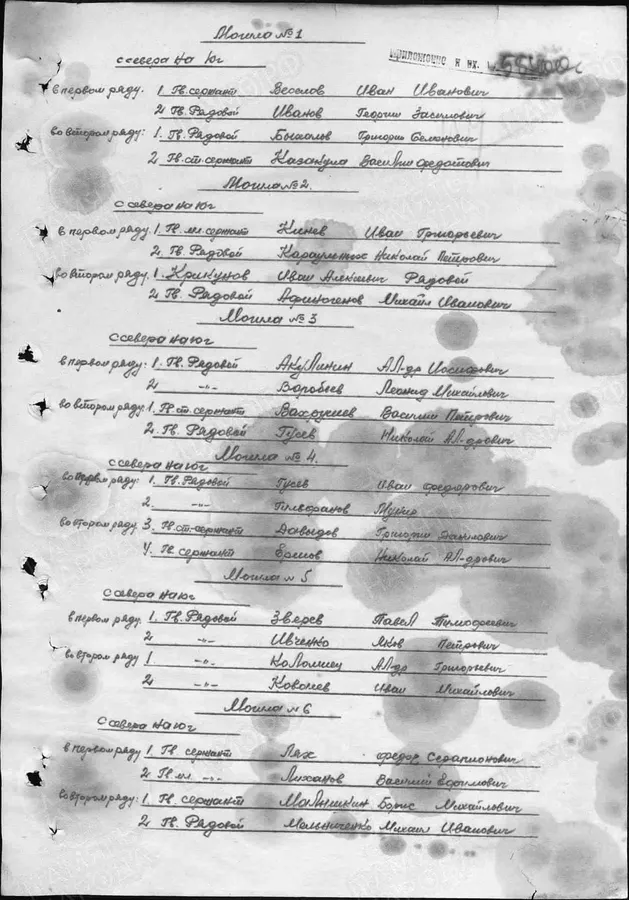 Могила №1
с севера на юг
Приложение к вх. №
в первом ряду. 1. Гв. сержант Веселов Иван Иванович
2. Гв. Рядовой Иванов Георгий
во втором ряду: 1. Гв. Рядовой Григорий Семенович
2. Гв. ст. сержант Казакула Василий Федотович
Могила №2.
с севера на юг
в первом ряду. 1. Гв. мл. сержант Кинев Иван Григорьевич
2. Гв. Рядовой Николай Петрович
во втором ряду. 1. Крикунов Иван Алексеевич Рядовой
2. Гв. Рядовой Афиногенов Михаил Иванович
Могила №3
с севера на юг
в первом ряду: 1. Гв. Рядовой Акулинин Ал-др Иосифович
2. -"- Воробьев Леонид Михайлович
во втором ряду: 1. Гв. ст. сержант Вахрушев Василий Петрович
2. Гв. Рядовой Гусев Николай Ал-дрович
Могила №4.
с севера на юг
во первом ряду: 1. Гв. Рядовой Гусев Иван Федорович
2. -"-
во втором ряду 3. Гв. ст-сержант Давыдов Григорий Данилович
4. Гв. сержант Ершов Николай Ал-дрович
Могила №5
с севера на юг
в первом ряду. 1. Гв. Рядовой Зверев Павел Тимофеевич
2 -"- Ивченко Яков Петрович
во втором ряду 1 -"- Коломиец Ал-др Григорьевич
2 -"- Ковалев Иван Михайлович
Могила №6
с севера на юг
в первом ряду 1. Гв. сержант Лях Федор Серапионович
2. Гв. мл. -"- Лиханов Василий Ефимович
во втором ряду: 1. Гв. сержант Малышкин Борис Михайлович
2. Гв. Рядовой Мельниченко Михаил Иванович